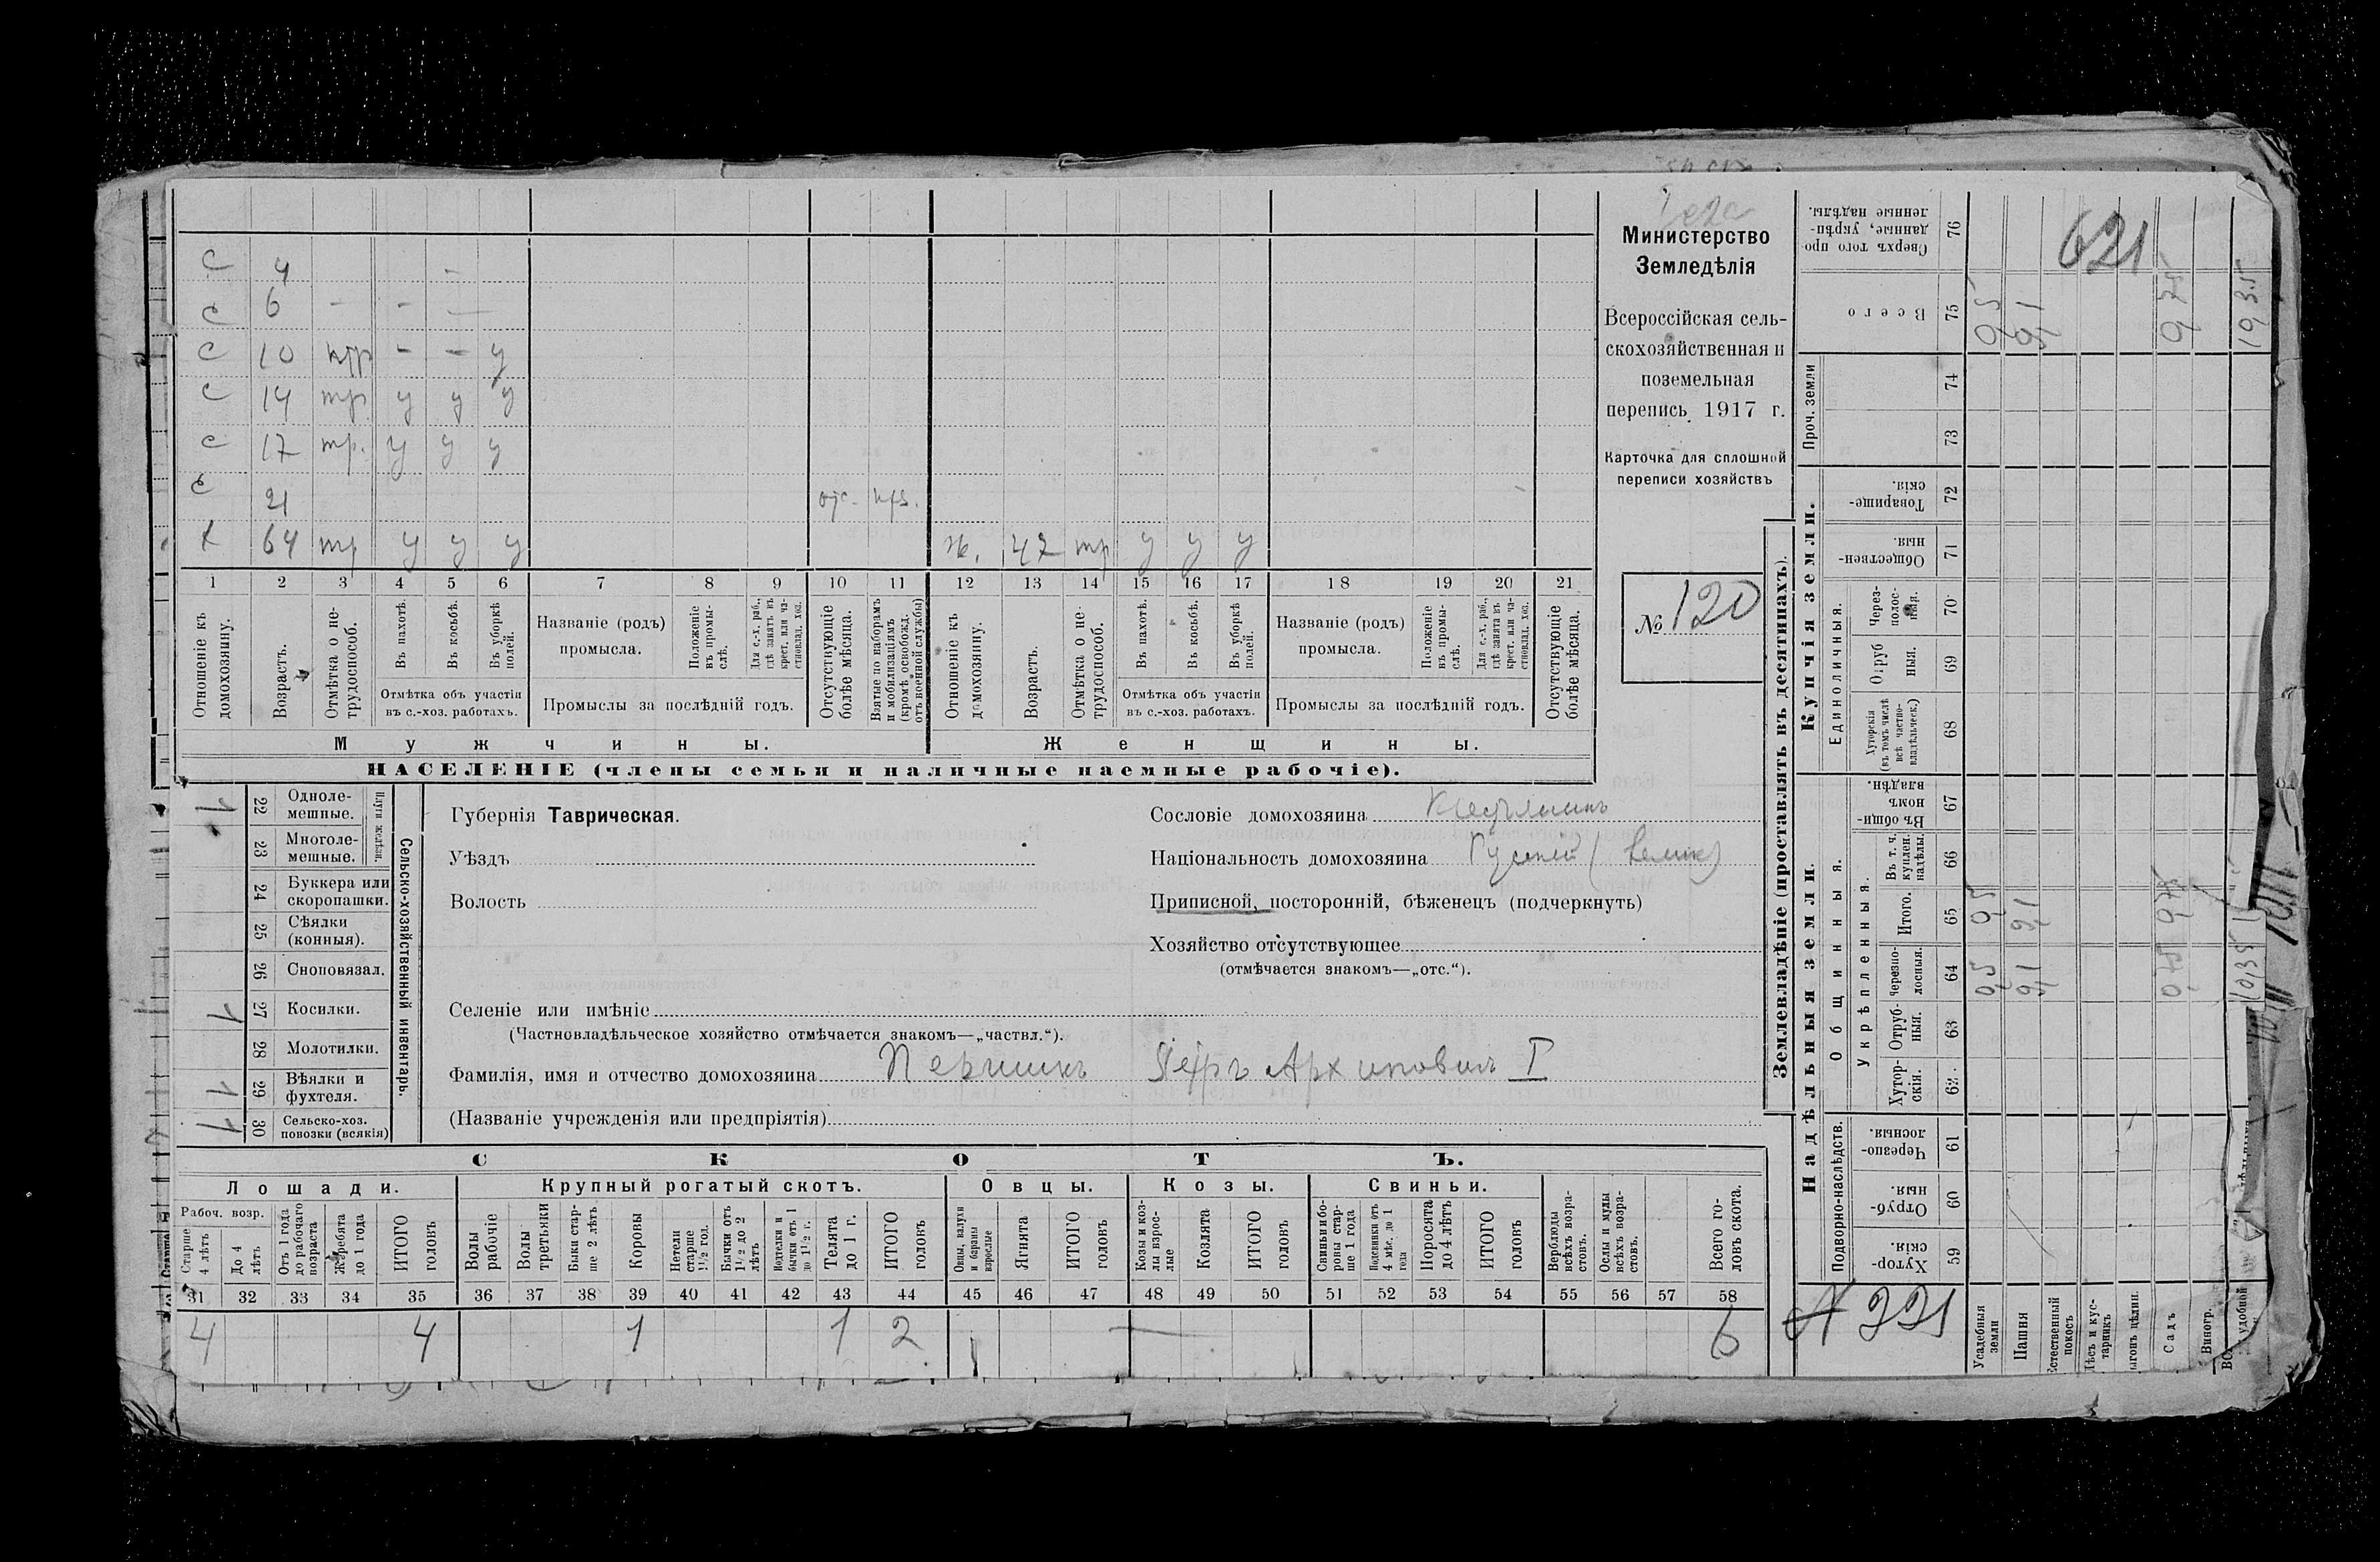 621
С 4 -
С 6 - - -
С 10 нтр - - у
С 14 тр у у у
С 17 тр. у у у
С 21 отс.
х 64 тр у у у ж. 42 тр у у у
1 2 3 4 5 6 7 8 9 10 11 12 13 14 15 16 17 18 19 20 21
Отношеніе къ домохозяину.
Возрастъ.
Отмѣтка о не-трудоспособ.
Въ пахотѣ.
Въ косьбѣ.
Въ уборкѣ полей.
Отмѣтка объ участіи въ с.-хоз. работахъ.
Названіе (родъ) промысла.
Положеніе въ промы-слѣ.
Для с.-х. раб., гдѣ занятъ въ крест. или ча-стновлад. хоз.
Промыслы за послѣдній годъ.
Отсутствующіе болѣе мѣсяца.
Взятые по наборамъ и мобилизаціямъ (кромѣ освобожд. отъ военной службы)
Отношеніе къ домохозяину.
Возрастъ.
Отмѣтка о не-трудоспособ.
Въ пахотѣ.
Въ косьбѣ.
Въ уборкѣ полей.
Отмѣтка объ участіи въ с.-хоз. работахъ.
Названіе (родъ) промысла.
Положеніе въ промы-слѣ.
Для с.-х. раб., гдѣ занята въ крест. или ча-стновлад. хоз.
Промыслы за послѣдній годъ.
Отсутствующіе болѣе мѣсяца.
Мужчины.
Женщины.
НАСЕЛЕНІЕ (члены семьи и наличные наемные рабочіе).
Министерство
Земледѣлія
Всероссійская сель-
скохозяйственная и
поземельная
перепись 1917 г.
Карточка для сплошной
переписи хозяйствъ
№ 120
Сельско-хозяйственный инвентарь.
Плуги желѣзн.
22 Одноле-мешные. 1
23 Многоле-мешные.
24 Буккера или скоропашки.
25 Сѣялки (конныя).
26 Сноповязал.
27 Косилки. 1
28 Молотилки.
29 Вѣялки и фухтеля. 1
30 Сельско-хоз. повозки (всякія) 1
Губернія Таврическая.
Уѣздъ
Волость
Сословіе домохозяина
Національность домохозяина Русскій (велик)
Приписной, посторонній, бѣженецъ (подчеркнуть)
Хозяйство отсутствующее
(отмѣчается знакомъ—„отс.“).
Селеніе или имѣніе
(Частновладѣльческое хозяйство отмѣчается знакомъ—„частвл.“).
Фамилія, имя и отчество домохозяина Петръ Архиповичъ I
(Названіе учрежденія или предпріятія)
СКОТЪ.
Лошади. Крупный рогатый скотъ. Овцы. Козы. Свиньи.
Рабоч. возр.
Старше 4 лѣтъ
До 4 лѣтъ
Отъ 1 года до рабочаго возраста
Жеребята до 1 года
ИТОГО головъ
Волы рабочіе
Волы третьяки
Быки стар-ше 2 лѣтъ
Коровы
Нетели старше 1½ год.
Бычки отъ 1½ до 2 лѣтъ
Подтелки и бычки отъ 1 до 1½ г.
Телята до 1 г.
ИТОГО головъ
Овцы, валухи и бараны взрослые
Ягнята
ИТОГО головъ
Козы и коз-лы взрос-лые
Козлята
ИТОГО головъ
Свиньи и бо-ровы стар-ше 1 года
Подсвинки отъ 4 мѣс. до 1 года
Поросята до 4 лѣтъ
ИТОГО головъ
Верблюды всѣхъ возра-стовъ.
Ослы и мулы всѣхъ возра-стовъ.
Всего го-ловъ скота.
31 32 33 34 35 36 37 38 39 40 41 42 43 44 45 46 47 48 49 50 51 52 53 54 55 56 57 58
4 4 1 1 2 6
Землевладѣніе (проставлять въ десятинахъ).
Надѣльныя земли.
Купчія земли.
Проч. земли
Подворно-наслѣдств.
Общинныя.
Укрѣпленныя.
Единоличныя.
59 Хутор-скія.
60 Отруб-ныя.
61 Черезпо-лосныя.
62 Хутор-скія.
63 Отруб-ныя.
64 Черезпо-лосныя. 0,5 9,1 0,75 10,35
65 Итого. 0,5 9,1 0,75
66 Въ т. ч. куплен. надѣлы.
67 Въ общи-номъ владѣн.
68 Хуторскія (въ томъ числѣ всѣ частно-владѣльческ.)
69 Отруб ныя.
70 Через-полос-ная.
71 Обществен-ныя.
72 Товарище-скія.
73
74
75 Всего
76 Сверхъ того про-данные, укрѣп-ленные надѣлы.
Усадебныя земли
Пашня
Естественный покосъ
Лѣсъ и кус-тарникъ
Садъ
Виногр.